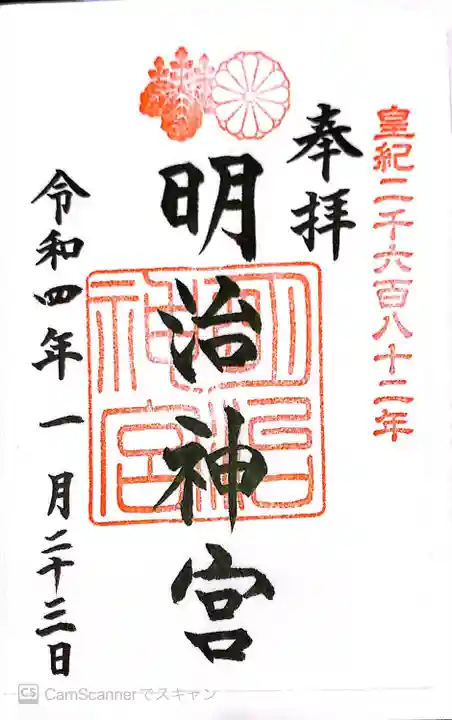 皇紀二千六百八十二年
奉拝
明治神宮
明治神宮
令和四年一月二十三日
CS CamScannerでスキャン